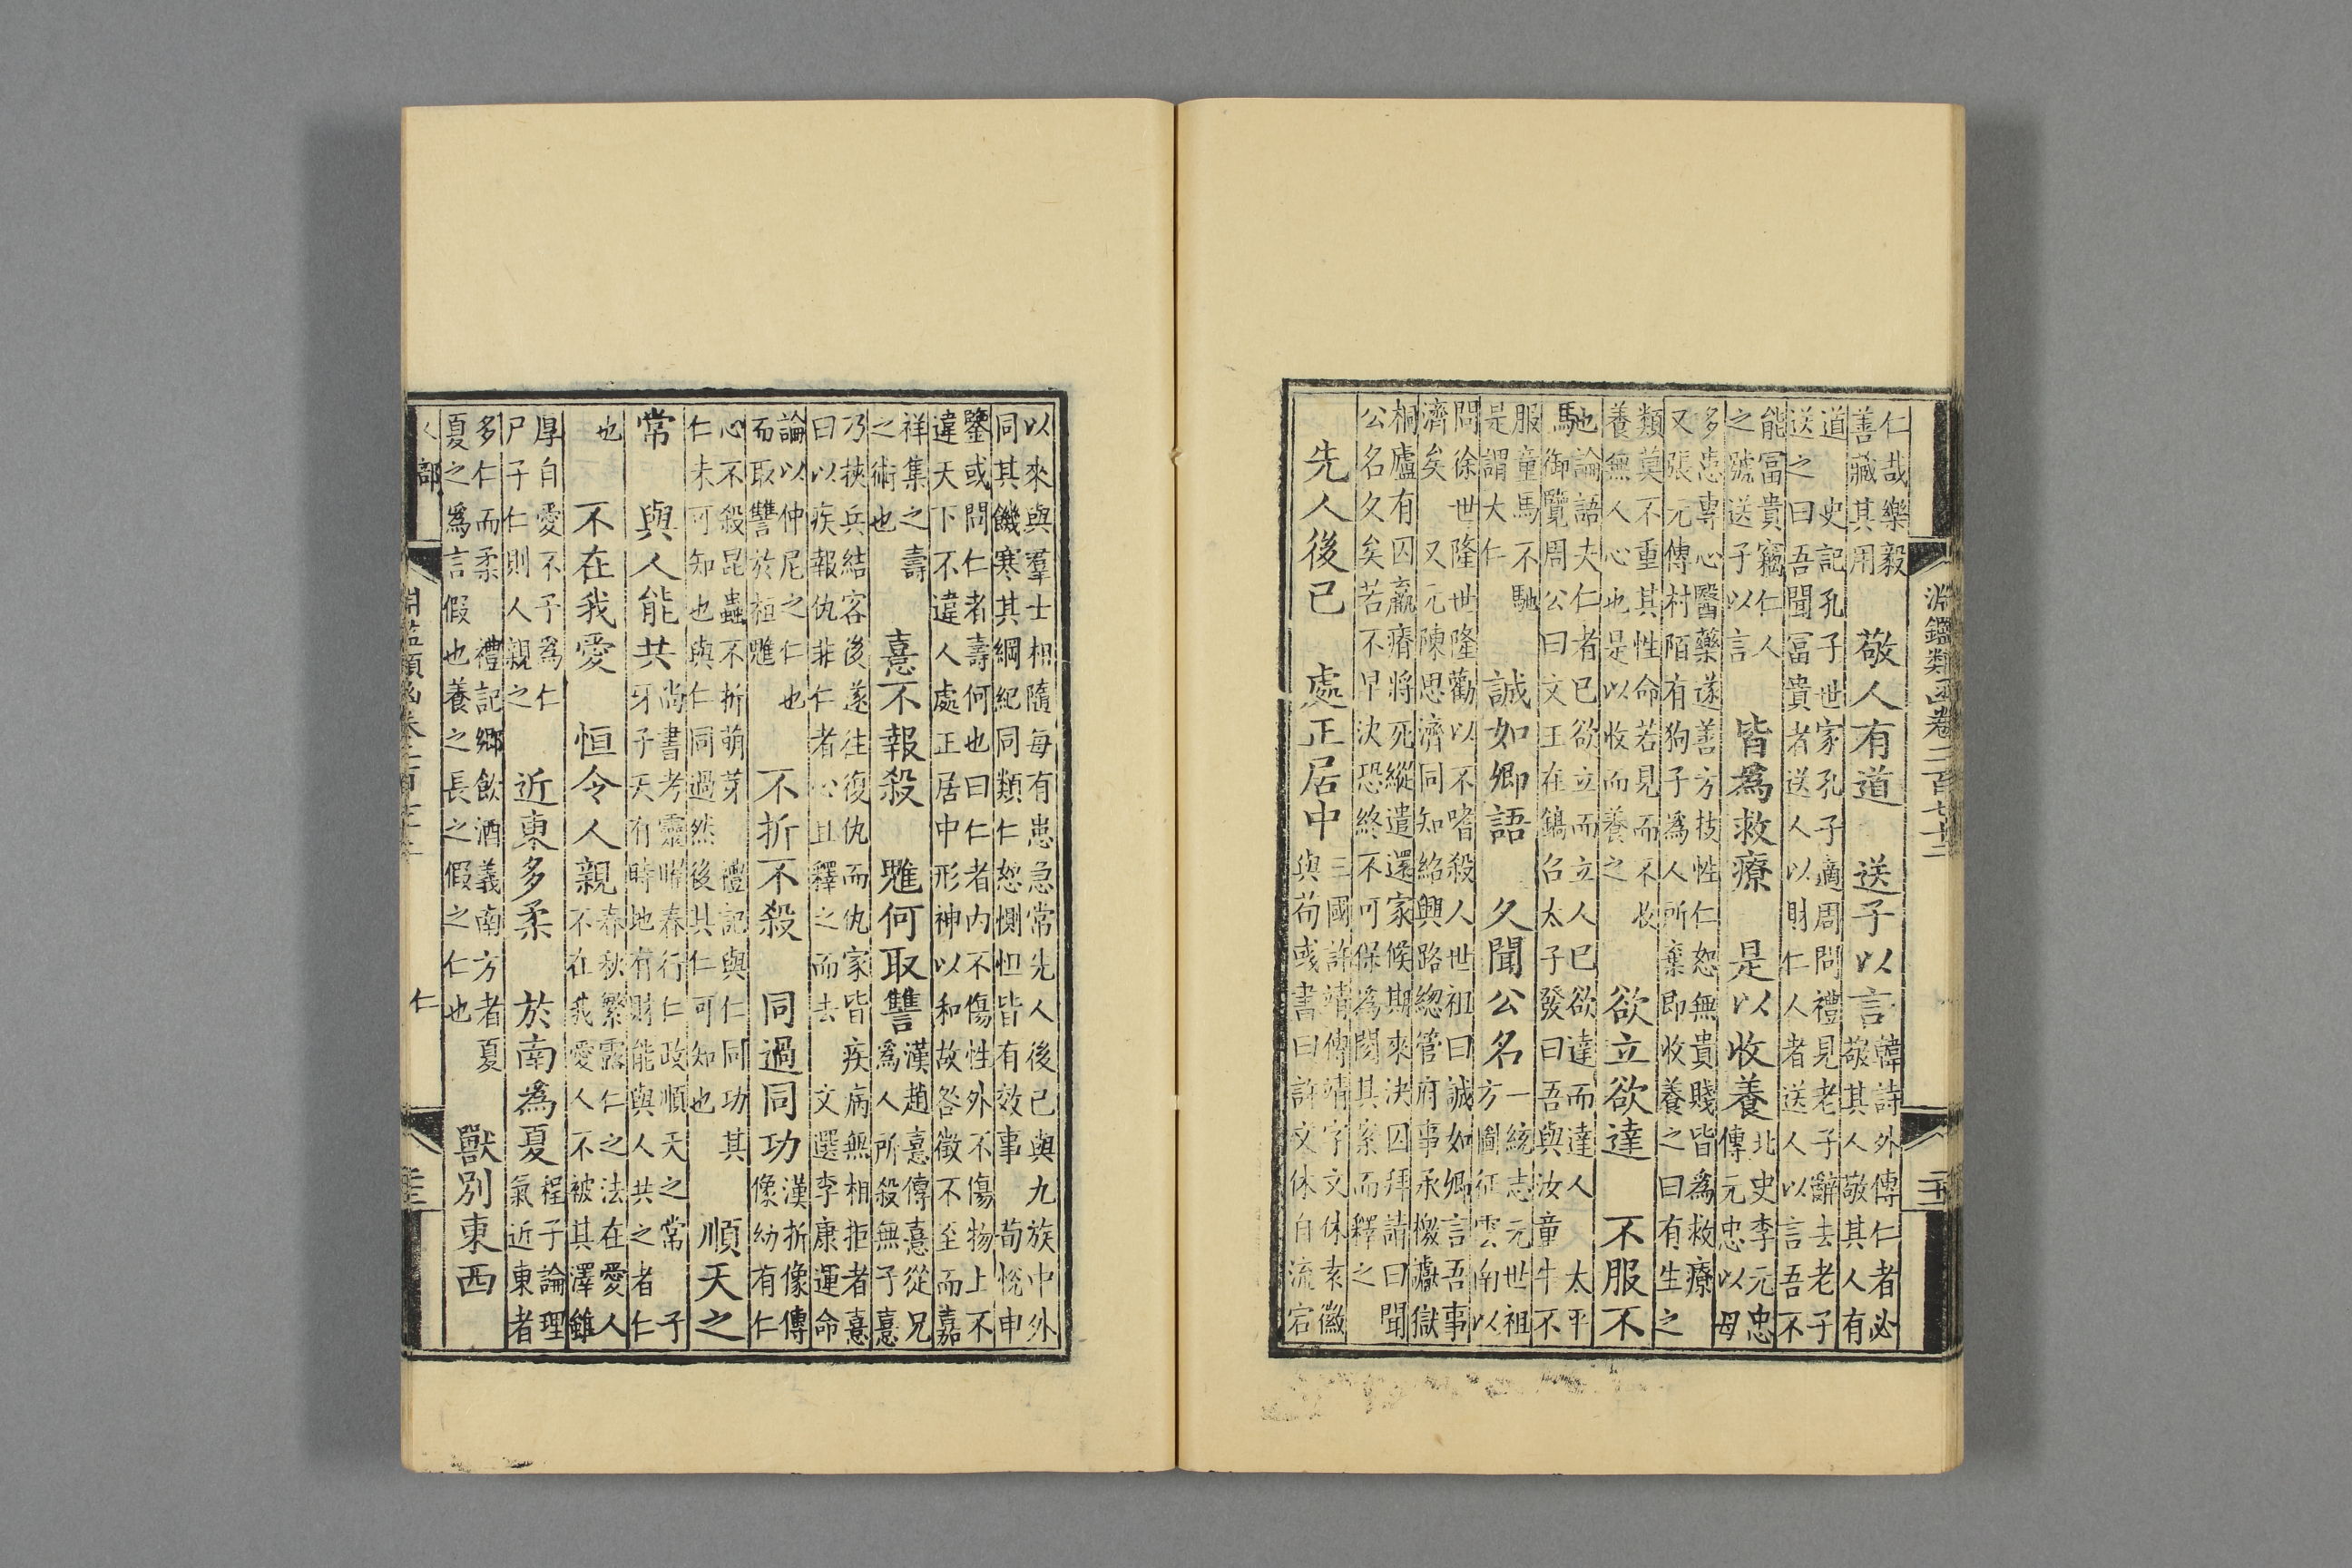 淵鑑類函卷二百七十二
仁哉樂毅善藏其用 敬人有道 送子以言 韓詩外傳仁者必敬其人敬其人有
道 史記孔子世家孔子適周問禮見老子辭去老子送之曰吾聞冨貴者送人以財仁人者送人以言吾不
能冨貴竊仁人之號送子以言 皆爲救療 是以收養 北史李元忠傳元忠以母
多患專心醫藥遂善方技性仁恕無貴賤皆爲救療又張元傳村陌有狗子爲人所棄即收養之曰有生之
類莫不重其性命若見而不收養無人心也是以收而養之 欲立欲達 不服不
馬 也論語夫仁者已欲立而立人已欲達而達人 太平御覽周公曰文王在鎬召太子發曰吾與汝童牛不
服童馬不馳是謂大仁 誠如卿語 久聞公名 一統志元世祖方圖征雲南以
問徐世隆世隆勸以不嗜殺人世祖曰誠如卿言吾事濟矣 又元陳思濟同知紹興路總管府事承檄讞獄
桐廬有囚羸瘠將死縱遣還家候期來決囚拜請曰聞公名久矣若不早決恐終不可保爲閱其案而釋之
先人後已 處正居中 三國許靖傳靖字文休袁徽與荀彧書曰許文休自流宕
以來與羣士相隨每有患急常先人後已與九族中外同其饑寒其綱紀同類仁恕惻怛皆有效事 荀悅申
鑒或問仁者壽何也曰仁者内不傷性外不傷物上不違天下不違人處正居中形神以和故咎徵不至而嘉
祥集之壽之術也 憙不報殺 雖何取讐 漢趙憙傳憙從兄爲人所殺無子憙
乃挾兵結客後遂往復仇而仇家皆疾病無相拒者憙曰以疾報仇非仁者心且釋之而去 文選李康運命
論以仲尼之仁也而取讐於桓魋 不折不殺 同過同功 漢折像傳像幼有仁
心不殺昆蟲不折萌芽 禮記與仁同功其仁未可知也與仁同過然後其仁可知也 順天之
常 與人能共 尚書考靈曜春行仁政順天之常 子牙子天有時地有財能與人共之者仁
也 不在我愛 恒令人親 春秋繁露仁之法在愛人不在我愛人不被其澤雖
厚自愛不予爲仁 尸子仁則人親之 近東多柔 於南爲夏 程子論理氣近東者
多仁而柔 禮記鄉飲酒義南方者夏夏之爲言假也養之長之假之仁也 獸別東西
人部 仁